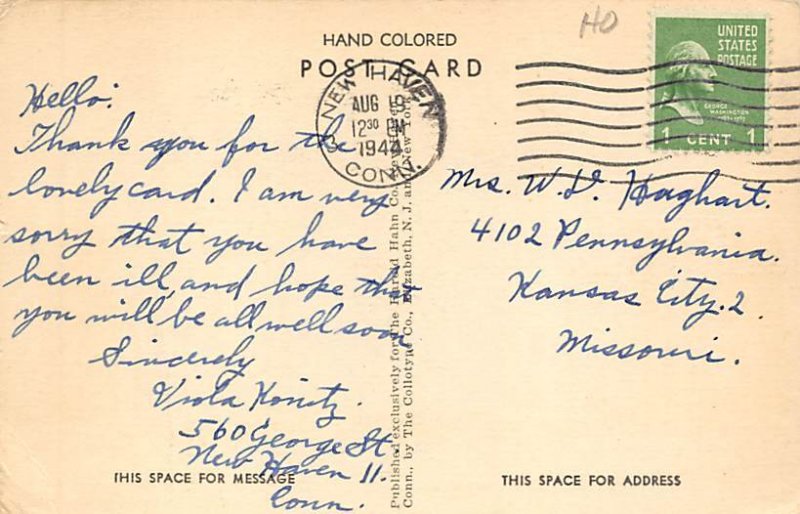 HO
HAND COLORED
POST CARD
UNITED
STATES
POSTAGE
GEORGE
WASHINGTON
1 CENT 1
NEW HAVEN
AUG 19
12 30 PM
1944
CONN.
Hello:
Thank you for the
lovely card. I am very
sorry that you have
been ill, and hope that
you will be all well soon
Sincerely
Viola
560 George St.
New Haven 11.
Conn.
Mrs. W. D. Haghart.
4102 Pennsylvania.
Kansas City. 2.
Missouri.
Published exclusively for The Harold Hahn Co.,
Conn., by The Collotype Co., Elizabeth, N. J. and New York
THIS SPACE FOR MESSAGE
THIS SPACE FOR ADDRESS